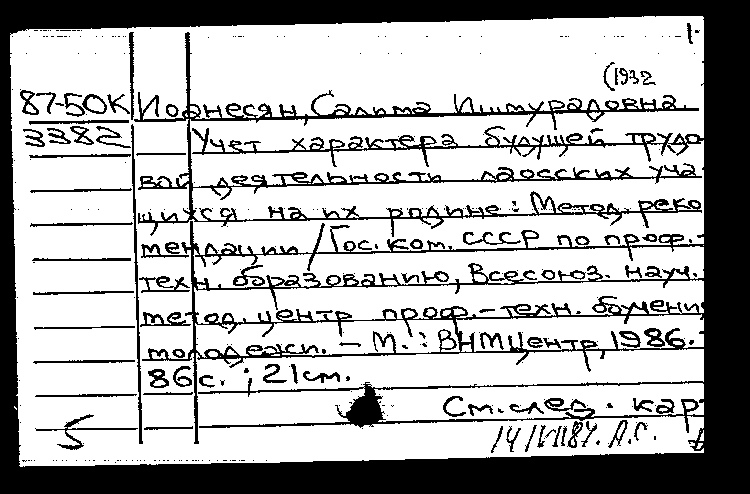 1.
(1932
87-50К Иоанесян, Сальма Ишмурадовна.
3382 Учет характера будущей трудо
вой деятельности лаосских уча
щихся на их родине: Метод. реко
мендации / Гос. ком. СССР по проф.-
техн. бразованию, Всесоюз. науч.
метод. центр проф.-техн. бучения
молодежи. - М.: ВНМЦентр, 1986.-
86 с.; 21 см.
См. след. кар
5 А.С.